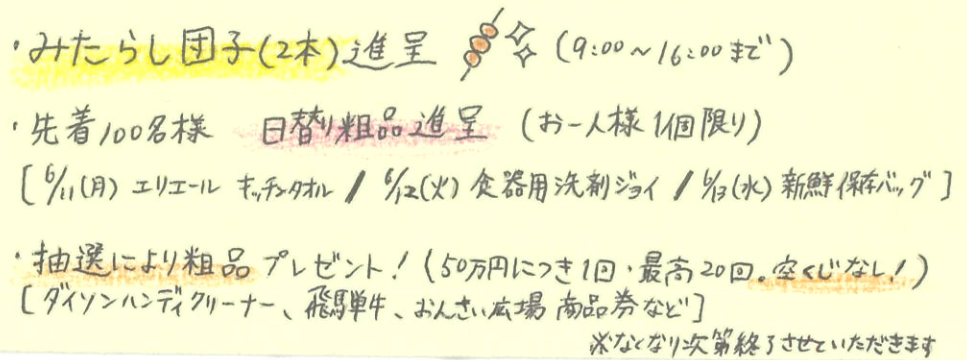 ・みたらし団子(2本)進呈 (9:00〜16:00まで)
・先着100名様 日替り粗品進呈 (お一人様1個限り)
[6/11(月) エリエール キッチンタオル / 6/12(火) 食器用洗剤ジョイ / 6/13(水) 新鮮保存バッグ]
・抽選により粗品プレゼント! (50万円につき1回・最高20回。空くじなし!)
[ダイソンハンディクリーナー、飛騨牛、おんさい広場 商品券など]
※なくなり次第終了させていただきます